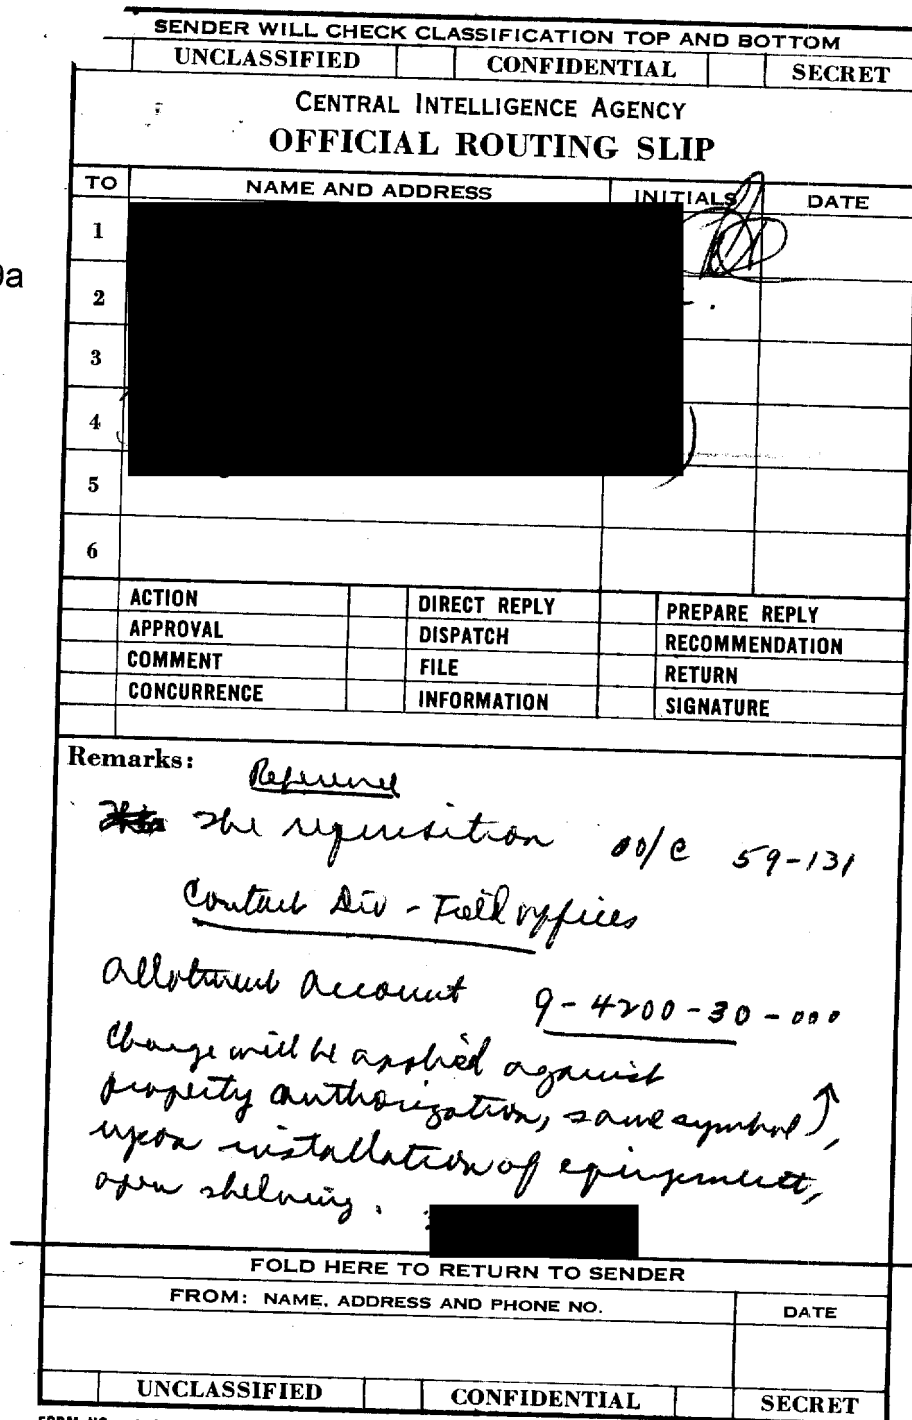 9a
SENDER WILL CHECK CLASSIFICATION TOP AND BOTTOM
UNCLASSIFIED CONFIDENTIAL SECRET
CENTRAL INTELLIGENCE AGENCY
OFFICIAL ROUTING SLIP
TO NAME AND ADDRESS INITIALS DATE
1
2
3
4
5
6
ACTION DIRECT REPLY PREPARE REPLY
APPROVAL DISPATCH RECOMMENDATION
COMMENT FILE RETURN
CONCURRENCE INFORMATION SIGNATURE
Remarks:
The requisition 00/C 59-131
Contact Div - Field offices
Allotment Account 9-4200-30-000
Charge will be applied against
property authorization, same symbol ),
upon installation of equipment,
open shelving.
FOLD HERE TO RETURN TO SENDER
FROM: NAME, ADDRESS AND PHONE NO. DATE
UNCLASSIFIED CONFIDENTIAL SECRET
FORM NO.